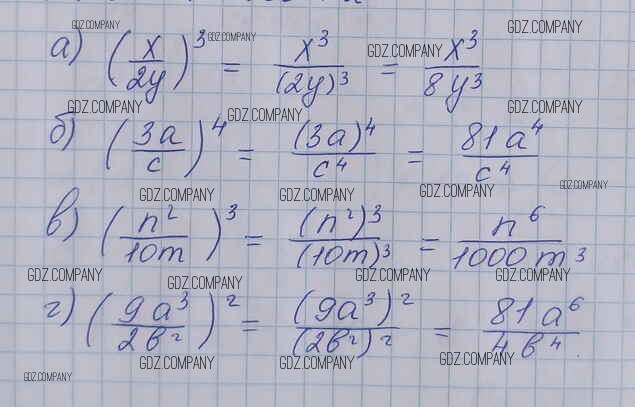 GDZ.COMPANY GDZ.COMPANY GDZ.COMPANY GDZ.COMPANY
а) (x/2y)³ = x³/(2y)³ = x³/8y³
GDZ.COMPANY GDZ.COMPANY GDZ.COMPANY
б) (3a/c)⁴ = (3a)⁴/c⁴ = 81a⁴/c⁴
GDZ.COMPANY GDZ.COMPANY GDZ.COMPANY GDZ.COMPANY
в) (n²/10m)³ = (n²)³/(10m)³ = n⁶/1000m³
GDZ.COMPANY GDZ.COMPANY GDZ.COMPANY GDZ.COMPANY
г) (9a³/2b²)² = (9a³)²/(2b²)² = 81a⁶/4b⁴
GDZ.COMPANY GDZ.COMPANY GDZ.COMPANY
GDZ.COMPANY